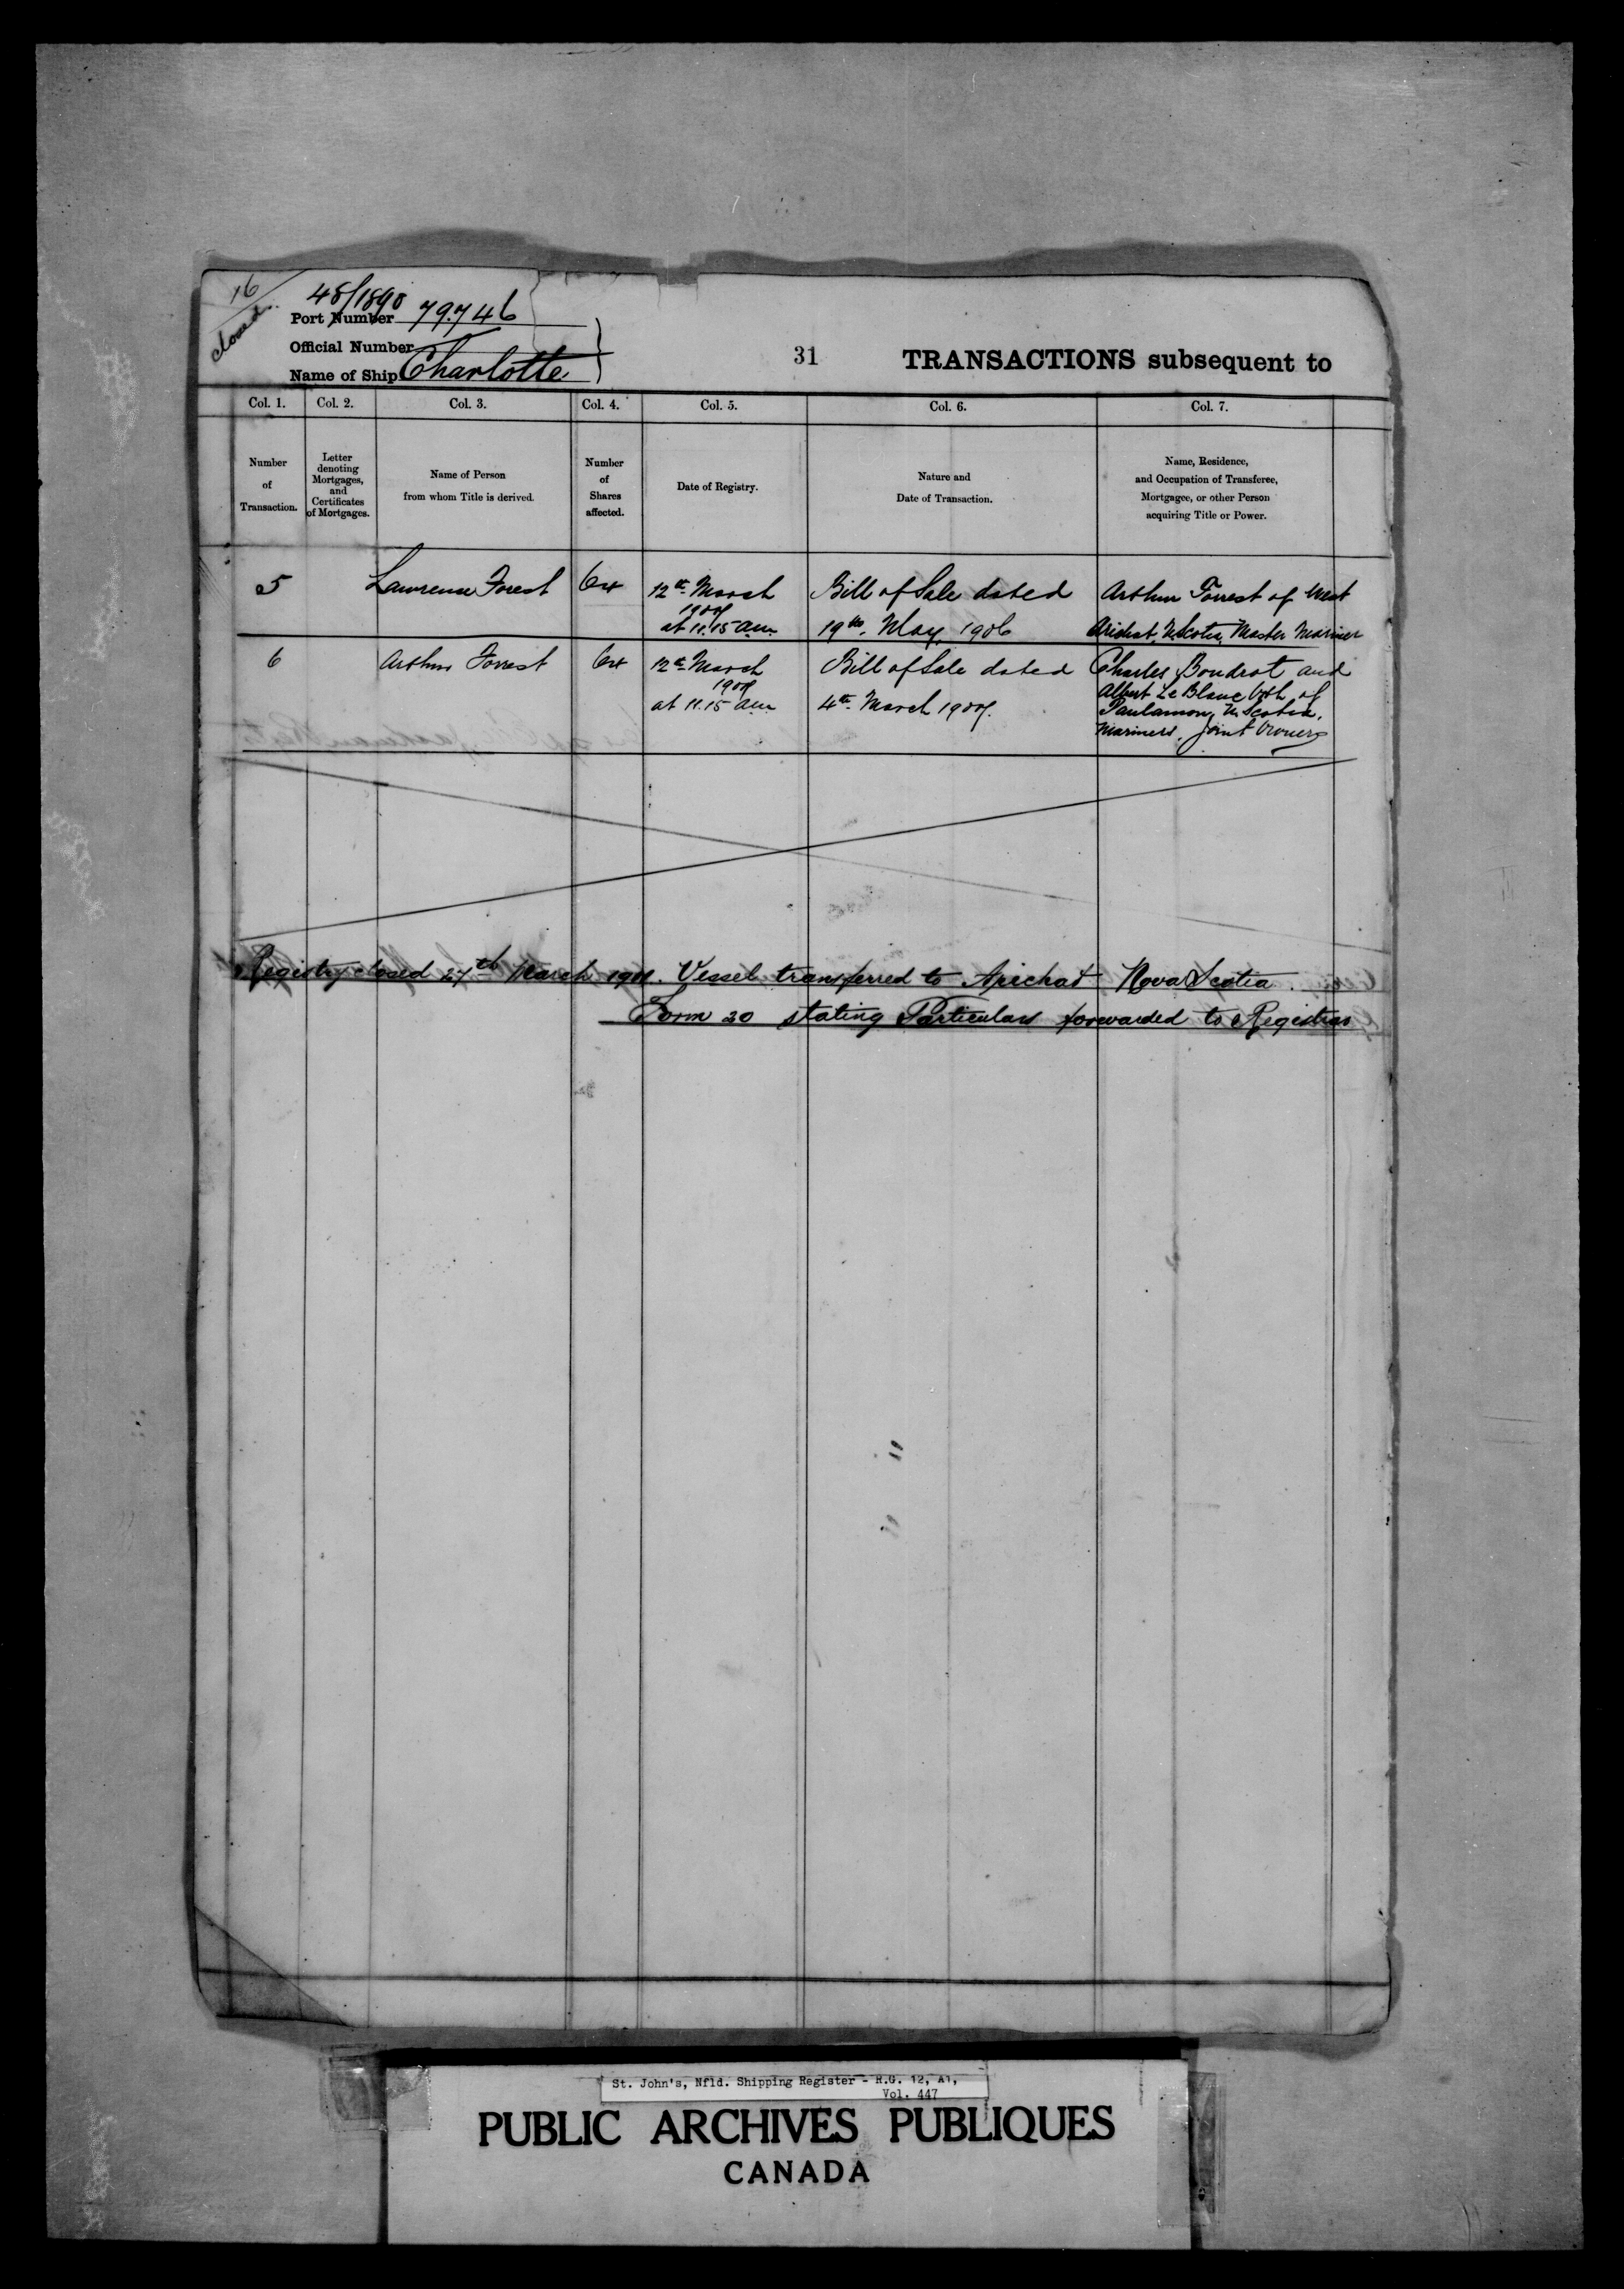 16
closed
48/1890
Port Number 79.746
Official Number
Name of Ship Charlotte
31 TRANSACTIONS subsequent to
Col. 1. Col. 2. Col. 3. Col. 4. Col. 5. Col. 6. Col. 7.
Number of Transaction.
Letter denoting Mortgages, and Certificates of Mortgages.
Name of Person from whom Title is derived.
Number of Shares affected.
Date of Registry.
Nature and Date of Transaction.
Name, Residence, and Occupation of Transferee, Mortgagee, or other Person acquiring Title or Power.
5 Lawrence Forest 64 12th March 1909 at 11.15 am Bill of Sale dated 19th May 1906 Arthur Forrest of West Arichat, N. Scotia, Master Mariner
6 Arthur Forrest 64 12th March 1909 at 11.15 am Bill of Sale dated 4th March 1909. Charles Boudrot and Albert Le Blanc both of N. Scotia, Mariners, Joint Owners
Registry closed 27th March 1911. Vessel transferred to Arichat Nova Scotia
Form 20 stating Particulars forwarded to Registrar
St. John's, Nfld. Shipping Register - R.G. 12, A1,
Vol. 447
PUBLIC ARCHIVES PUBLIQUES
CANADA